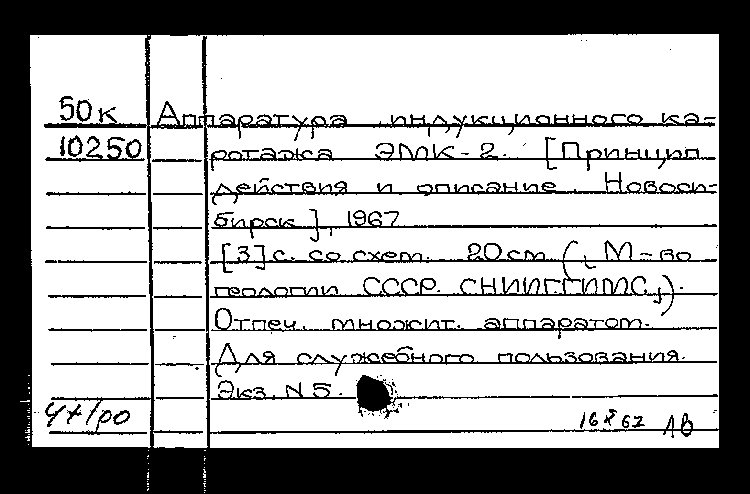 50к Аппаратура индукционного ка-
10250 ротажа ЭМК-2. [Принцип
действия и описание. Новоси-
бирск], 1967
[3]с. со схем. 20см (, М-во
геологии СССР. СНИИГГИМС,).
Отпеч. множит. аппаратом.
Для служебного пользования.
Экз. N 5.
16 X 67 ЛВ